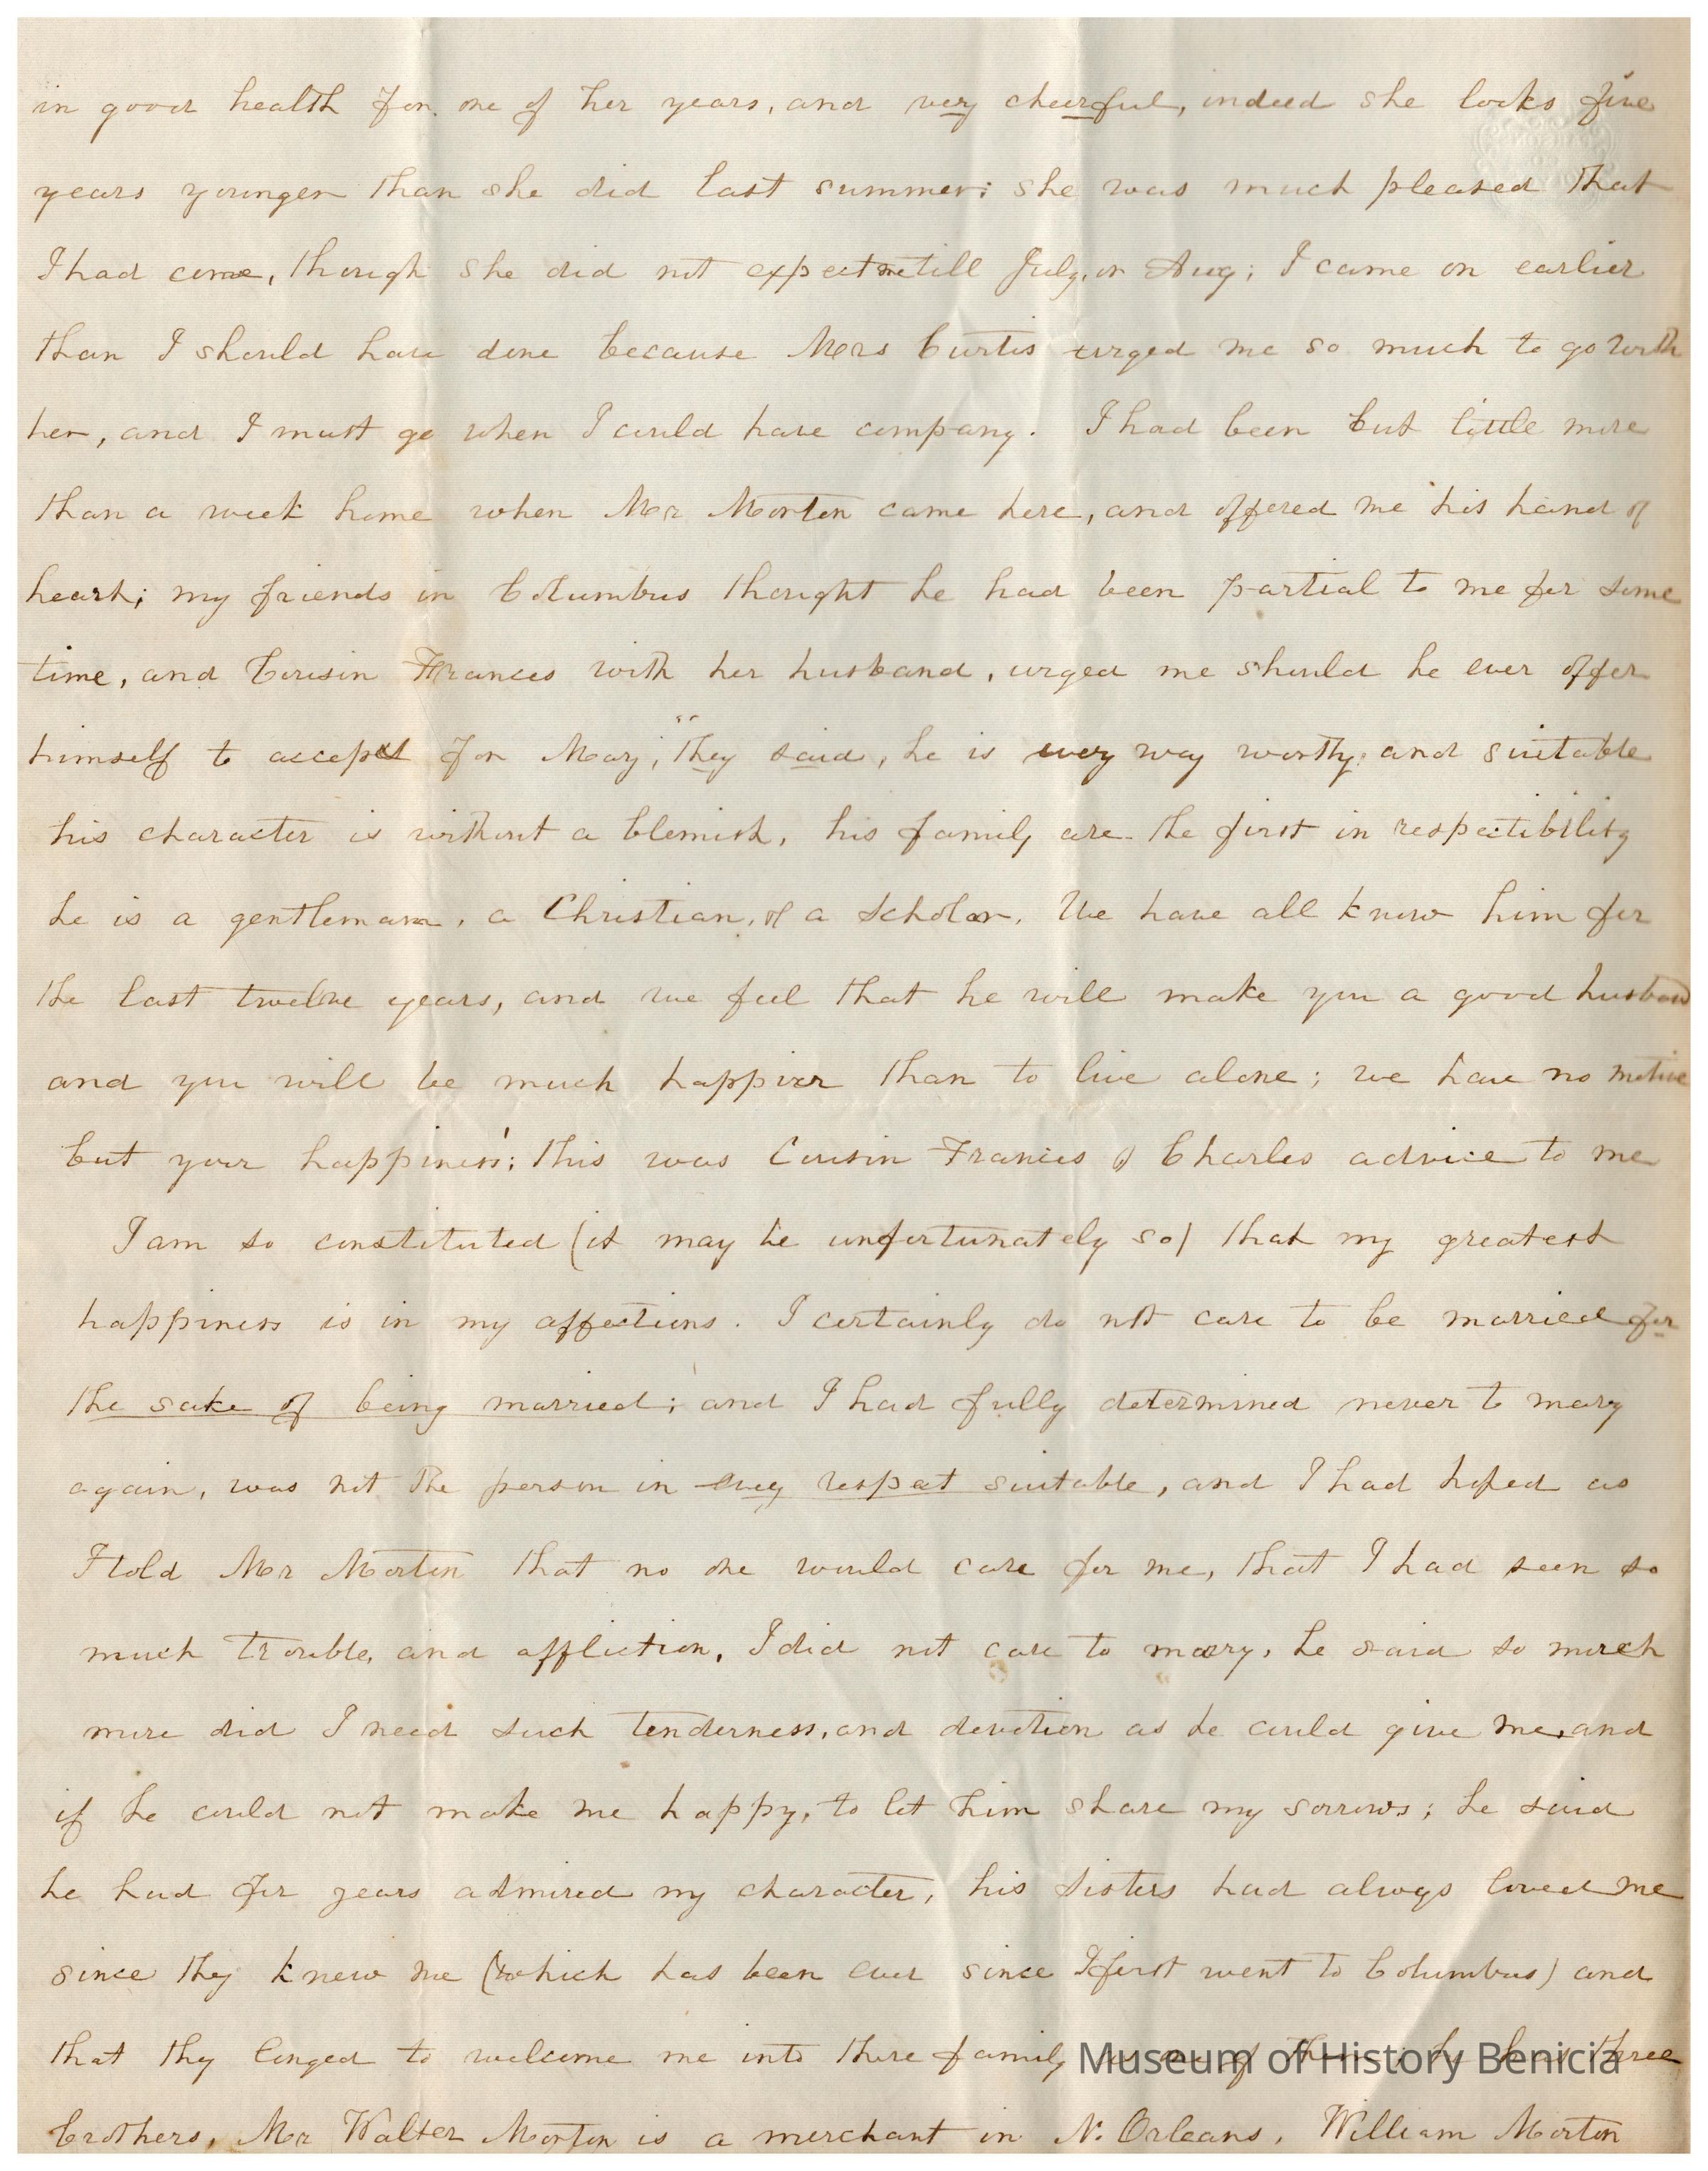 in good health for one of her years, and very cheerful, indeed she looks five
years younger than she did last summer; she was much pleased that
I had come, though she did not expect me till July, or Aug; I came on earlier
than I should have done because Mrs Curtis urged me so much to go with
her, and I must go when I could have company. I had been but little more
than a week home when Mr Morton came here, and offered me his hand &
heart; my friends in Columbus thought he had been partial to me for some
time, and Cousin Frances with her husband, urged me should he ever offer
himself to accept for Mary, "they said, he is every way worthy and suitable
his character is without a blemish, his family are the first in respectibility
he is a gentleman, a Christian, & a scholar. We have all know him for
the last twelve years, and we feel that he will make you a good husband
and you will be much happier than to live alone; we have no motive
but your happiness; this was Cousin Frances & Charles advice to me
I am so constituted (it may be unfortunately so) that my greatest
happiness is in my affections. I certainly do not care to be married for
the sake of being married; and I had fully determined never to mary
again, was not the person in every respect suitable, and I had hoped as
I told Mr Morton that no one would care for me, that I had seen so
much trouble, and affliction, I did not care to marry, he said so much
more did I need such tenderness, and devotion as he could give me, and
if he could not make me happy, to let him share my sorrows; he said
he had for years admired my character, his sisters had always loved me
since they knew me (which has been ever since I first went to Columbus) and
that they longed to welcome me into there family as one of them; he has three
brothers, Mr Walter Morton is a merchant in N. Orleans, William Morton
Museum of History Benicia